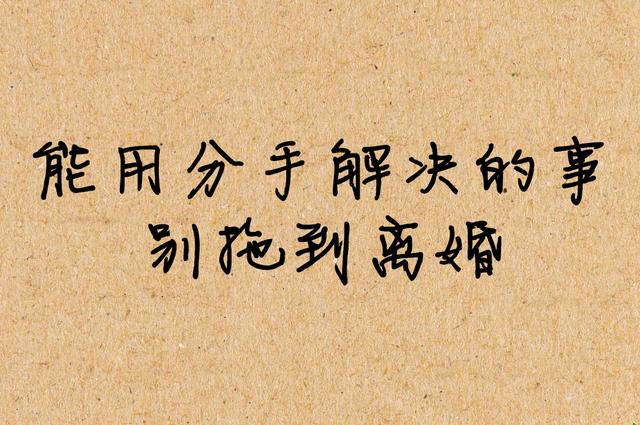 能用分手解决的事
别拖到离婚